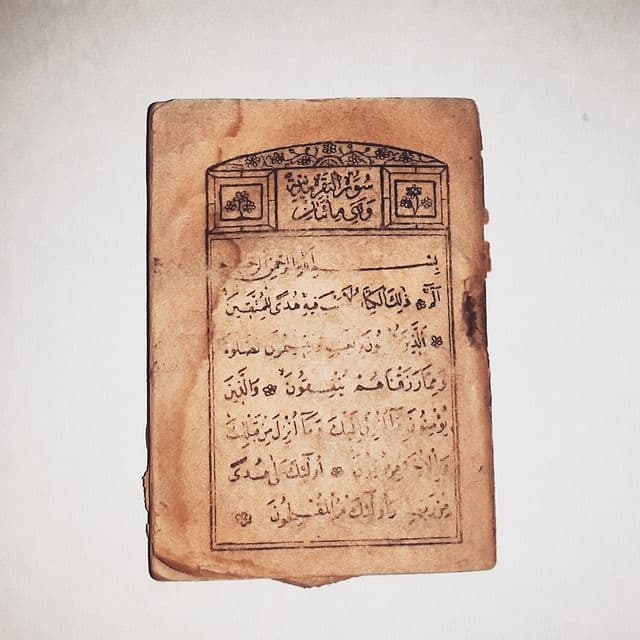 سورة البقرة مدنية
وهي مائتان
بسم الله الرحمن الرحيم
الٓمٓ ذٰلِكَ الْكِتَابُ فِيهِ هُدًى لِلْمُتَّقِينَ
الَّذِينَ يُؤْمِنُونَ بِالْغَيْبِ وَيُقِيمُونَ الصَّلٰوةَ
وَمِمَّا رَزَقْنَاهُمْ يُنْفِقُونَ وَالَّذِينَ
يُؤْمِنُونَ بِمَا أُنْزِلَ إِلَيْكَ وَمَا أُنْزِلَ مِنْ قَبْلِكَ
وَبِالْآخِرَةِ هُمْ يُوقِنُونَ أُولٰئِكَ عَلَى هُدًى
مِنْ رَبِّهِمْ وَأُولٰئِكَ هُمُ الْمُفْلِحُونَ